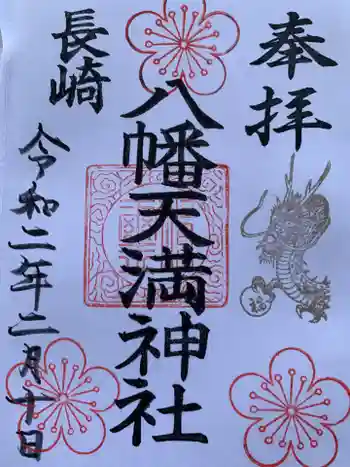 奉拝
八幡天満神社
長崎
令和二年二月十日